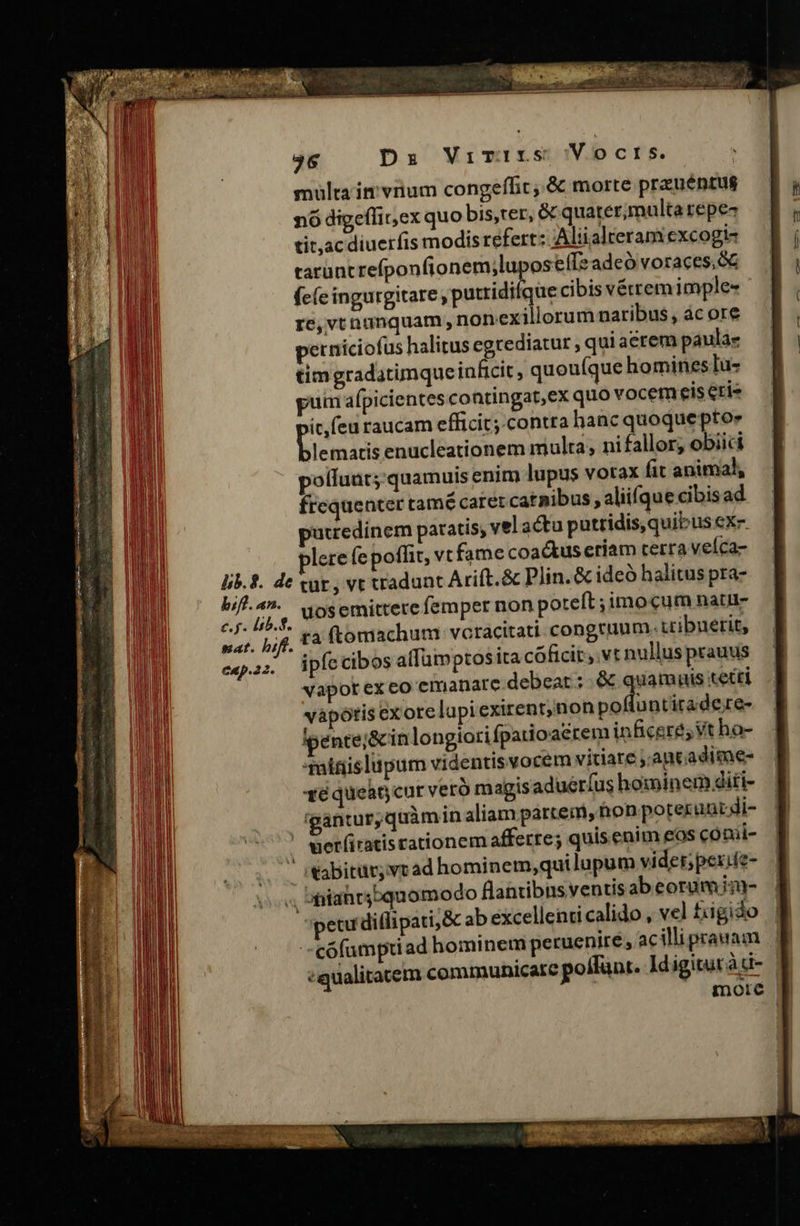 96 De Vitiis Vocis.
multa in vnum congeſſit, & morte præuentus
nō digeſſit, ex quo bis, ter, & quater, multa repe-
tit, ac diuerſis modis refert: Alii alteram excogi-
tarunt reſponſionem; lupos eſſe adeò voraces, &
ſeſe ingurgitare, putridiſque cibis vētrem imple-
re, vt nunquam, non exillorum naribus, ac ore
pernicioſus halitus egrediatur, qui aërem paula-
tim gradatimque inficit, quouſque homines lu-
pum aſpicientes contingat, ex quo vocem eis eri-
pit, ſeu raucam efficit; contra hanc quoque pro-
blematis enucleationem multa, ni fallor, obiici
poſſunt; quamuis enim lupus vorax ſit animal,
frequenter tamē caret carnibus, aliiſque cibis ad
putredinem paratis, vel actu putridis, quibus ex-
plere ſe poſſit, vt fame coactus etiam terra veſca-
lib.8. de tur, vt tradunt Ariſt. & Plin. & ideò halitus pra-
hiſt. an. uos emittere ſemper non poteſt; imo cum natu-
c.5. lib.8. ra ſtomachum voracitati congruum tribuerit,
nat. hiſt. ipſe cibos aſſumptos ita cōficit, vt nullus prauus
cap.22. vapor ex eo emanare debeat: & quamuis tetri
vaporis ex ore lupi exirent, non poſſunt ita de re-
pente, & in longiori ſpatio aërem inficere, vt ho-
minis lupum videntis vocem vitiare, aut adime-
re queāt; cur verò magis aduerſus hominem diri-
gantur, quàm in aliam partem, non poterunt di-
uerſitatis rationem afferre; quis enim eos comi-
tabitur, vt ad hominem, qui lupum videt, perue-
niant; quomodo flantibus ventis ab eorum im-
petu diſſipati, & ab excellenti calido, vel frigido
cōſumpti ad hominem peruenire, ac illi prauam
qualitatem communicare poſſunt. Id igitur à ti-
more